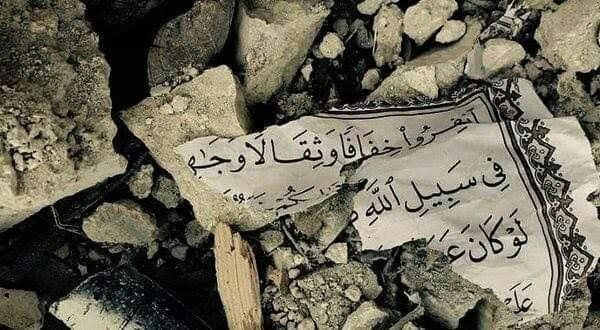 ٱنفِرُوا۟ خِفَافًا وَثِقَالًا وَجَـٰهِ
فِي سَبِيلِ ٱللَّهِ
لَوْ كَانَ عَرَ
عَلَيْ